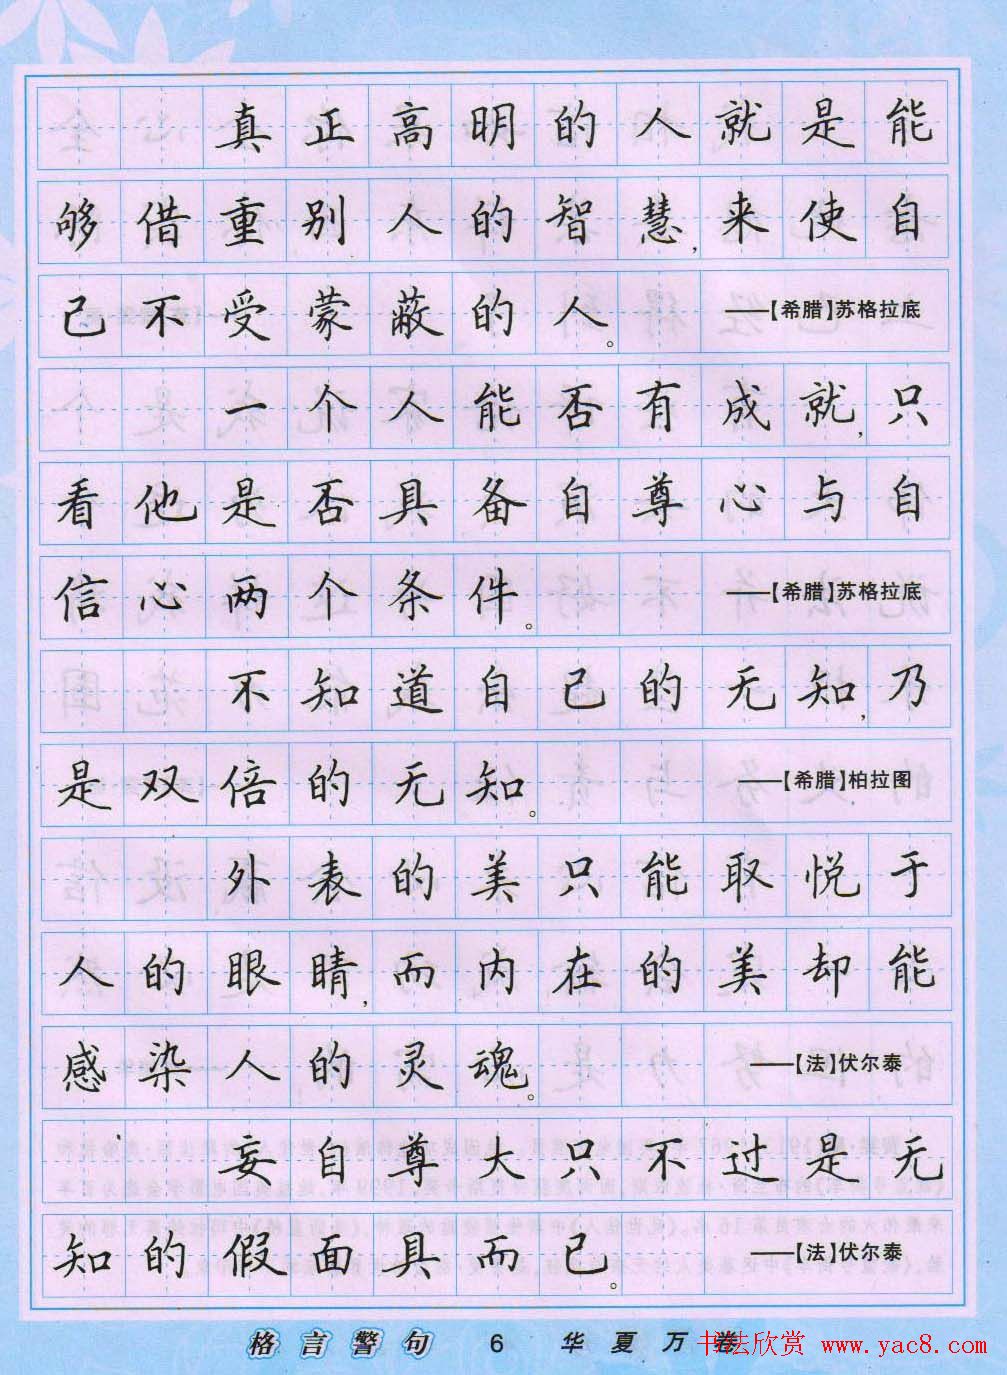 真正高明的人就是能
够借重别人的智慧,来使自
己不受蒙蔽的人。 ——【希腊】苏格拉底
一个人能否有成就,只
看他是否具备自尊心与自
信心两个条件。 ——【希腊】苏格拉底
不知道自己的无知,乃
是双倍的无知。 ——【希腊】柏拉图
外表的美只能取悦于
人的眼睛,而内在的美却能
感染人的灵魂。 ——【法】伏尔泰
妄自尊大只不过是无
知的假面具而已。 ——【法】伏尔泰
格言警句 6 华夏万卷 书法欣赏 www.yac8.com